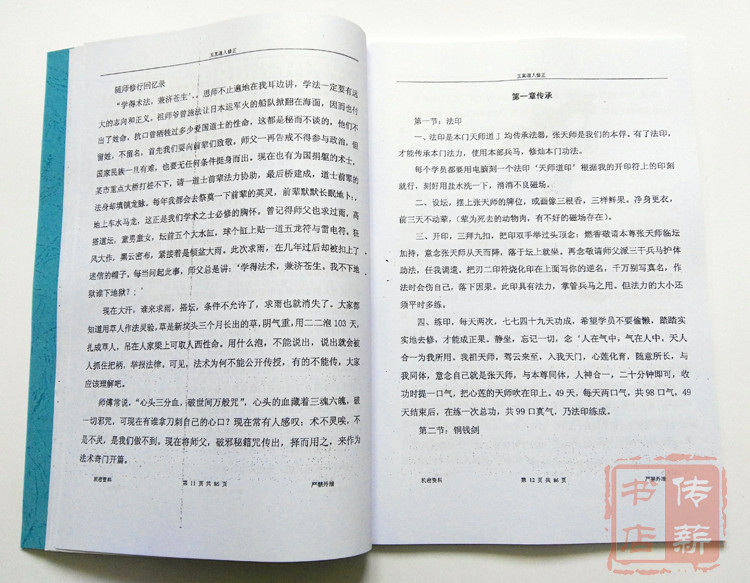 玉真道人修正
随师修行回忆录
“学得术法，兼济苍生”，恩师不止遍地在我耳边讲，学法一定要有远
大的志向和正义，祖师爷曾施法让日本运军火的船队掀翻在海面，因而也付
出了姓命，抗口曾牺牲过多少爱国道士的性命，这都是秘而不谈的，他们不
留姓，不留名，首先我们要向前辈们致敬。师父一再告戒不得参与政治，但
国家民族一旦有难，也要无任何条件挺身而出，现在也有为国捐躯的术士，
某市重点大桥打桩不下，请一道士前辈法力协助，最后桥建成，道士前辈的
法身却填镇龙脉，每年我都会去祭奠一下前辈的英灵，前辈默默长眠地下，
地上车水马龙，这正是我们学术之士必修的胸怀。曾记得师父也求过雨，高
搭道坛，童男童女，坛前五个大水缸，球个缸上贴一道五龙符与雷电符。狂
风大作，黑云密布，紧接着是倾盆大雨。此次求雨，在几年过后却被扣上了
迷信的帽子，每当问起此事，师父总是讲：‘学得法术，兼济苍生。我不下地
狱谁下地狱？；’
现在大汗，谁来求雨，搭坛，条件不允许了，求雨也就消失了。大家都
知道用草人作法灵验，草是新坟头三个月长出的草，阴气重，用二二泡 103 天，
扎成草人，吊在人家梁上可取人西性命。用什么泡，不能说出，说出就会被
人抓住把柄，举报法律。可见，法术为何不能公开传授，有的不能传，大家
应该理解吧。
师傅常说，“心头三分血，破世间万般咒”，心头的血藏着三魂六魄，破
一切邪咒，可现在有谁拿刀刺自己的心口？现在常有人感叹：术不灵唉，不
是不灵，是我们做不到。现在将师父，破邪秘籍咒传出，择而用之，来作为
法术奇门开篇。
机密资料
第 11 页 共 86 页
严禁外泄
玉真道人修正
第一章传承
第一节：法印
一、法印是本门天师道』均传承法器，张天师是我们的本俘。有了法印，
才能传承本门法力，使用本部兵马，修灿本门功法。
每个学员都要用电脑刻一个法印‘天师道印’根据我的开印符上的印刻
就行，刻好用盐水洗一下，消消不良磁场。
二、设坛，摆上张天师的牌位，或画像三根香，三样鲜果。净身更衣，
前三天不动荤，（荤为死去的动物肉，有不好的磁场存在）。
三、开印，三拜九扣，把印双手举过头顶念：燃香敬请本尊张天师临坛
加持，意念张天师从天而降，落于坛上就坐。再念敬请师父派三千兵马护体
助法，任我调遣。把刃二印符烧化印在上面写你的逆名，千万别写真名，作
法时会伤自己，落下因果。此印具有法力，掌管兵马之用。但法力的大小还
须平时多练。
四、练印，每天两次，七七四十九天功成，希望学员不要偷懒，踏踏实
实地去修，才能成正果。静坐，忘记一切，念‘人在气中，气在人中，天人
合一为我所用。我祖天师，驾云来至，入我天门，心莲化育，随意所长，与
我同体，意念自己就是张天师，与本尊同体，人神合一，二十分钟即可，收
功时提一口气，把心莲的天师吹在印上。49 天，每天两口气，共 98 口气，49
天结束后，在练一次总功，共 99 口真气，乃法印练成。
第二节：铜钱剑
机密资料
第 12 页 共 86 页
严禁外泄
传薪
书店